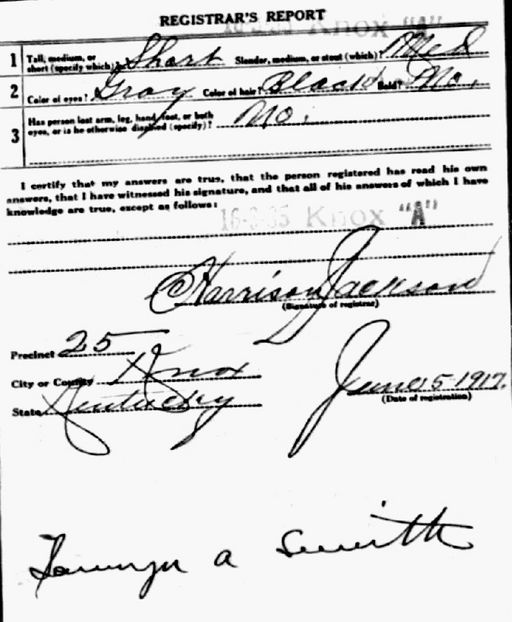 REGISTRAR'S REPORT
Knox "A"
1 Tall, medium, or short (specify which)? Short Slender, medium, or stout (which)? Med
2 Color of eyes? Gray Color of hair? Black Bald? No.
3 Has person lost arm, leg, hand, foot, or both eyes, or is he otherwise disabled (specify)? No.
I certify that my answers are true, that the person registered has read his own
answers, that I have witnessed his signature, and that all of his answers of which I have
knowledge are true, except as follows:
Knox "A"
Harrison Jackson
(Signature of registrar)
Precinct 25
City or County Knox
State Kentucky
June 5 1917.
(Date of registration)
a Smith